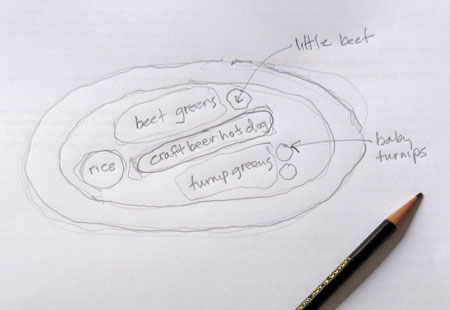 little beet
beet greens
craft beer hot dog
rice
turnip greens
baby
turnips